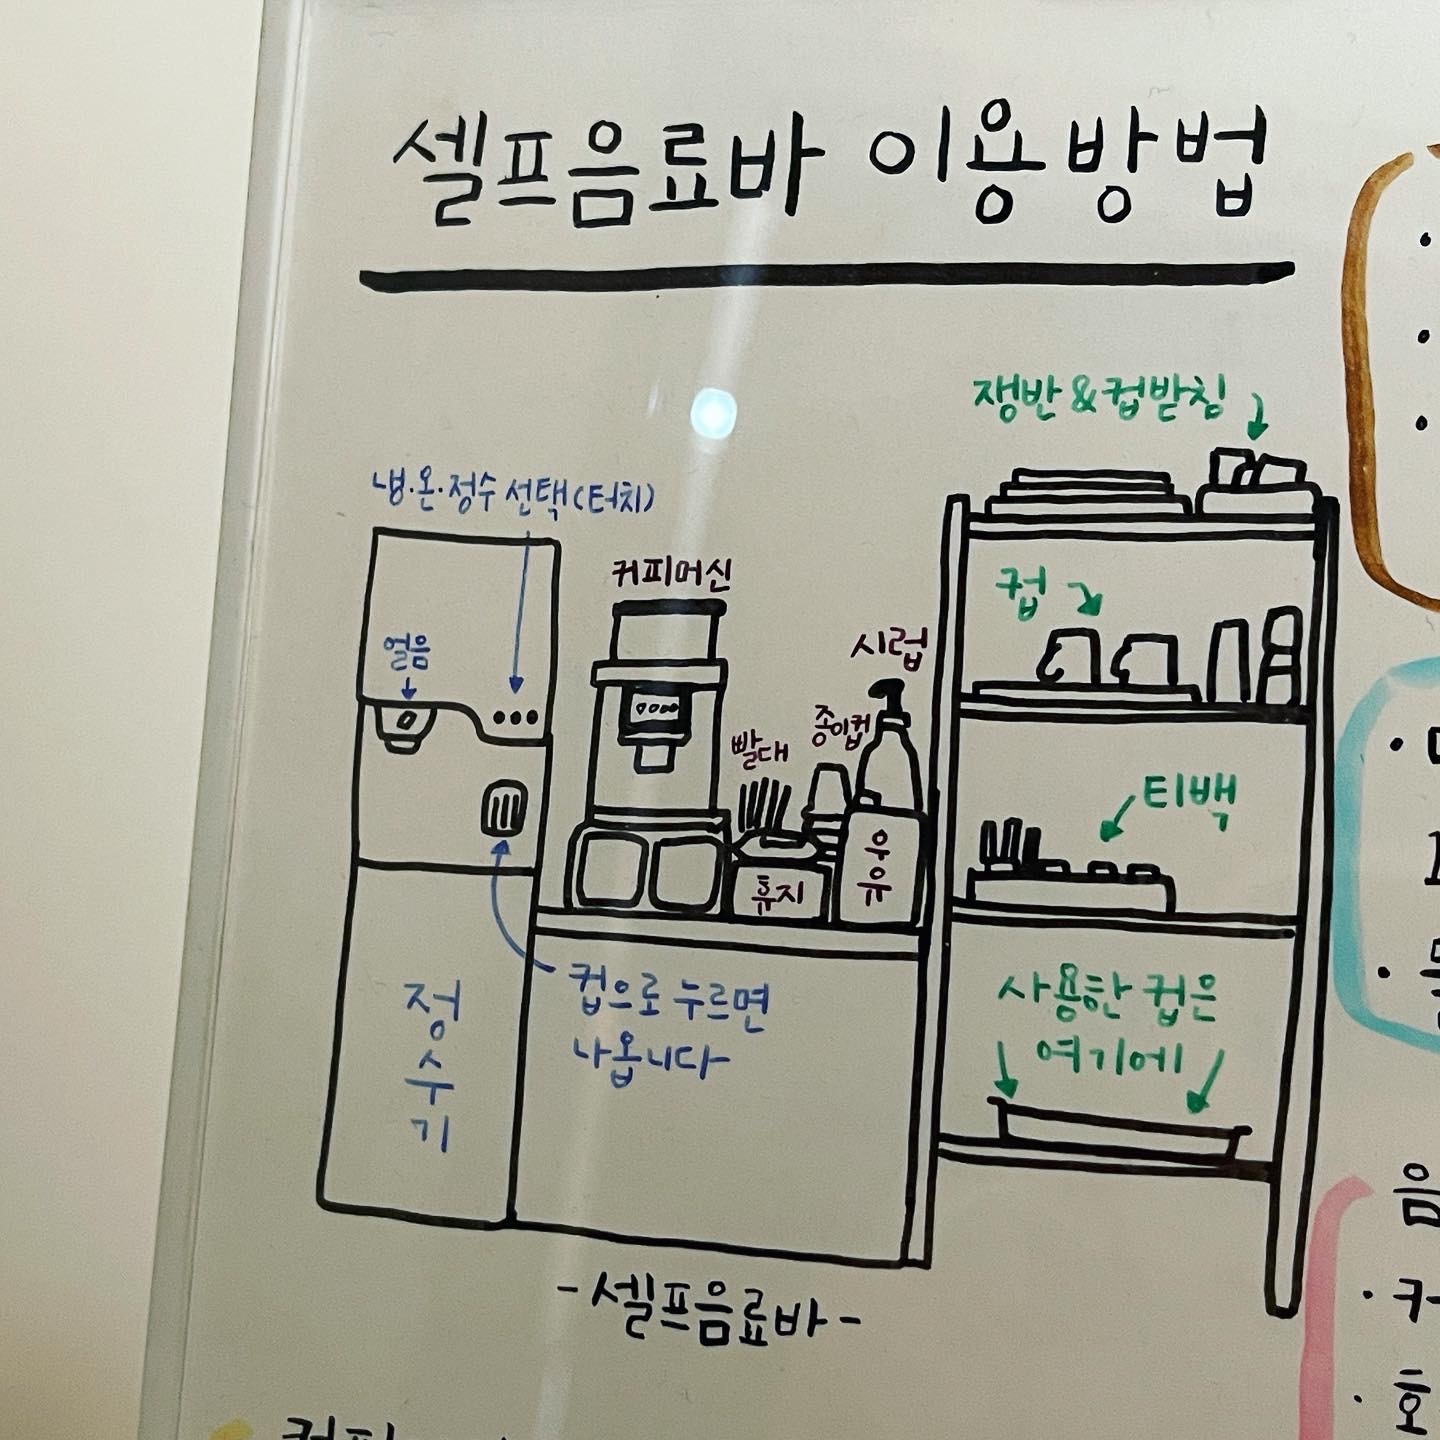 셀프음료바 이용방법
쟁반 & 컵받침
냉·온·정수 선택(터치)
얼음
커피머신
빨대
종이컵
시럽
휴지
우유
컵
티백
사용한 컵은
여기에
컵으로 누르면
나옵니다
정수기
-셀프음료바-
커피